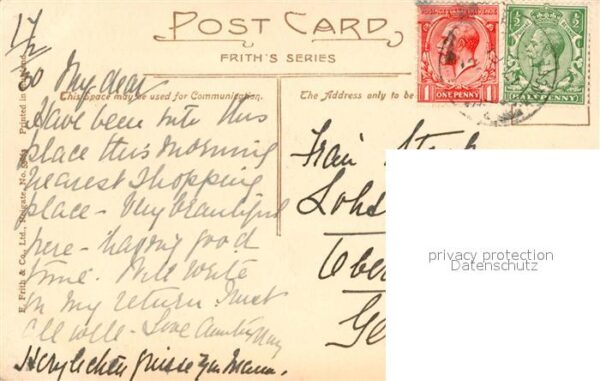 POST CARD
FRITH'S SERIES
This space may be used for Communication.
The Address only to be
17/2
My dear
Have been into this
place this morning
nearest shopping
place - Very beautiful
here - having good
time. Will write
on my return
all well - Love
Herzlichen
Frau
Lohs
Ober
Ge
ONE PENNY
HALFPENNY
1
1
½
½
F. Frith & Co., Ltd., Reigate, No.
Printed in England
privacy protection
Datenschutz